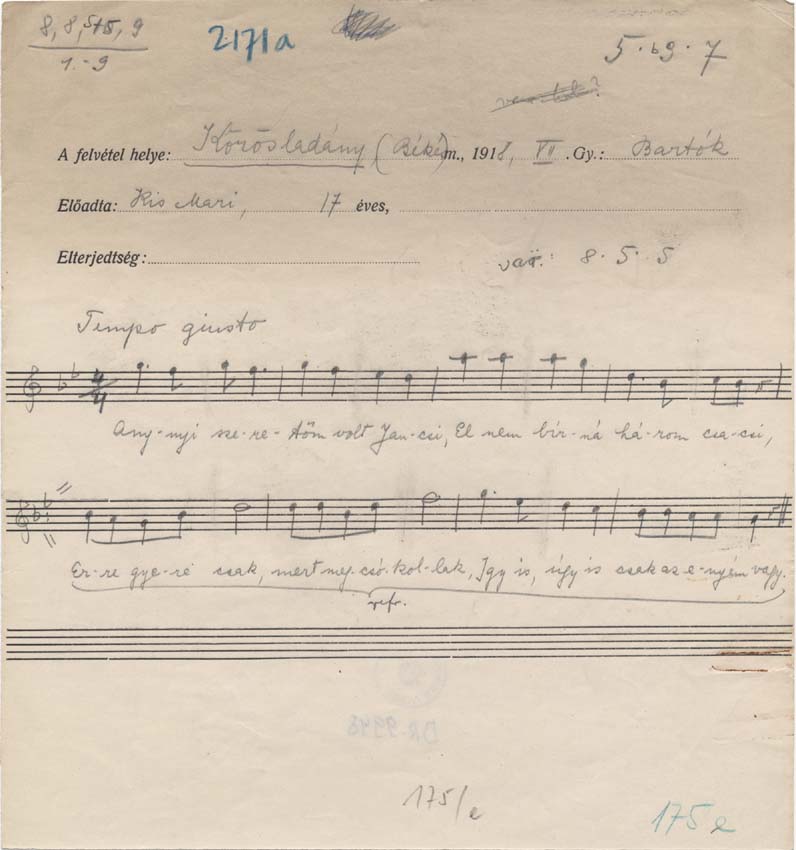 8, 8, 5+5, 9
1.-9
2171a
5. b9. 7
A felvétel helye: Körösladány (Béké m., 1918, VII. Gy.: Bartók
Előadta: Kis Mari, 17 éves,
Elterjedtség:
var.: 8. 5. 5
Tempo giusto
4/4
Any-nyi sze-re-tőm volt Jan-csi, El nem bír-ná há-rom csa-csi,
Er-re gye-re csak, mert meg-csó-kol-lak, Így is, úgy is csak az e-nyém vagy.
refr.
DR-9948
175/e
175 e